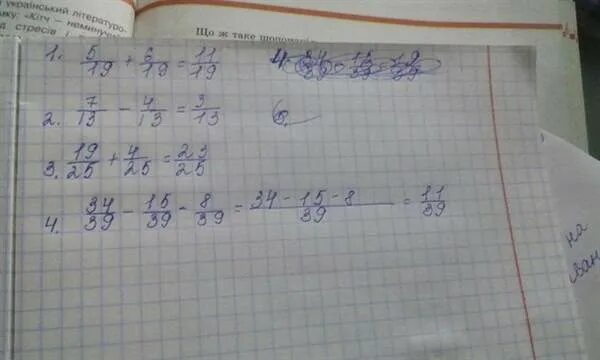 український літературо-
«Кітч – неминуч
стресів
Що ж таке
1. 5/19 + 6/19 = 11/19
2. 7/13 - 4/13 = 3/13
3. 19/25 + 4/25 = 23/25
4. 34/39 - 15/39 - 8/39 = (34 - 15 - 8)/39 = 11/39
на